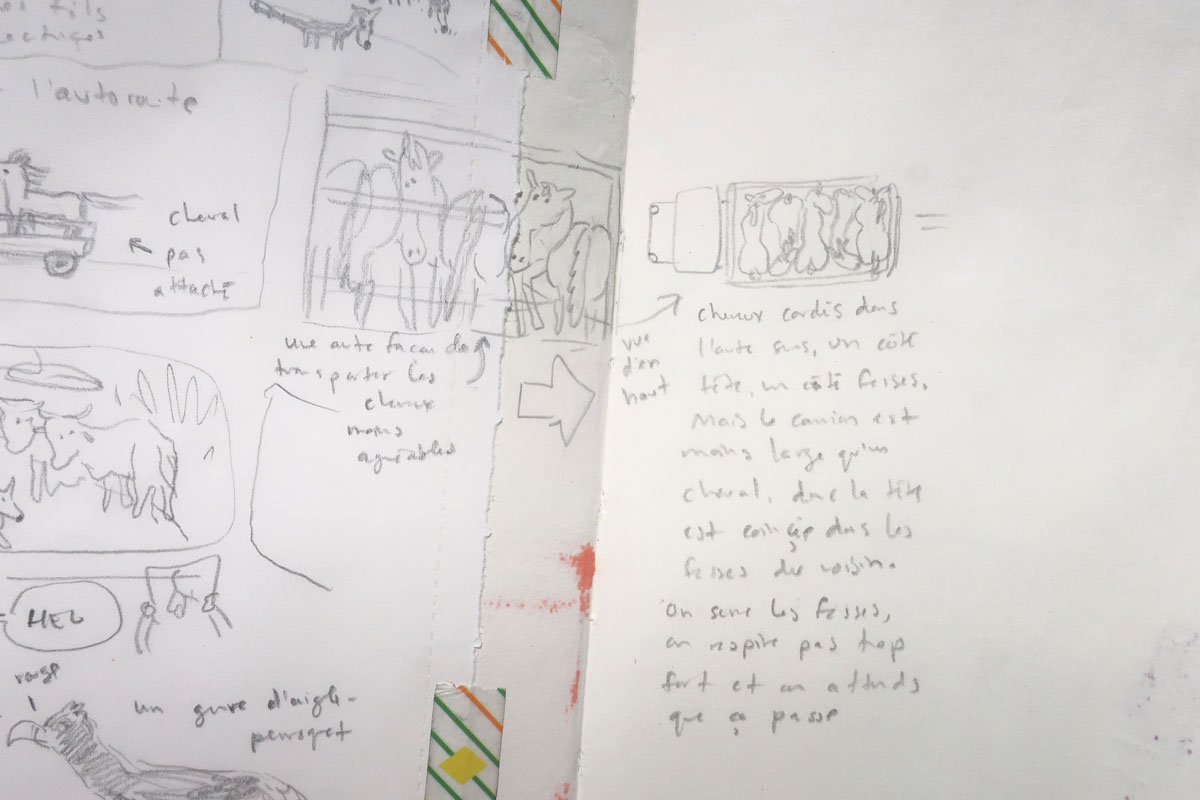 fils
l'autoroute
cheval
pas
attaché
une autre façon de
transporter les
chevaux
moins
agréables
HEL
rouge
un genre d'aigle-
perroquet
vue
d'en
haut
chevaux cordés dans
l'autre sens, un côté
tête, un côté fesses.
Mais le camion est
moins large qu'un
cheval, donc la tête
est coinçée dans les
fesses du voisin.
On serre les fesses,
on respire pas trop
fort et on attends
que ça passe